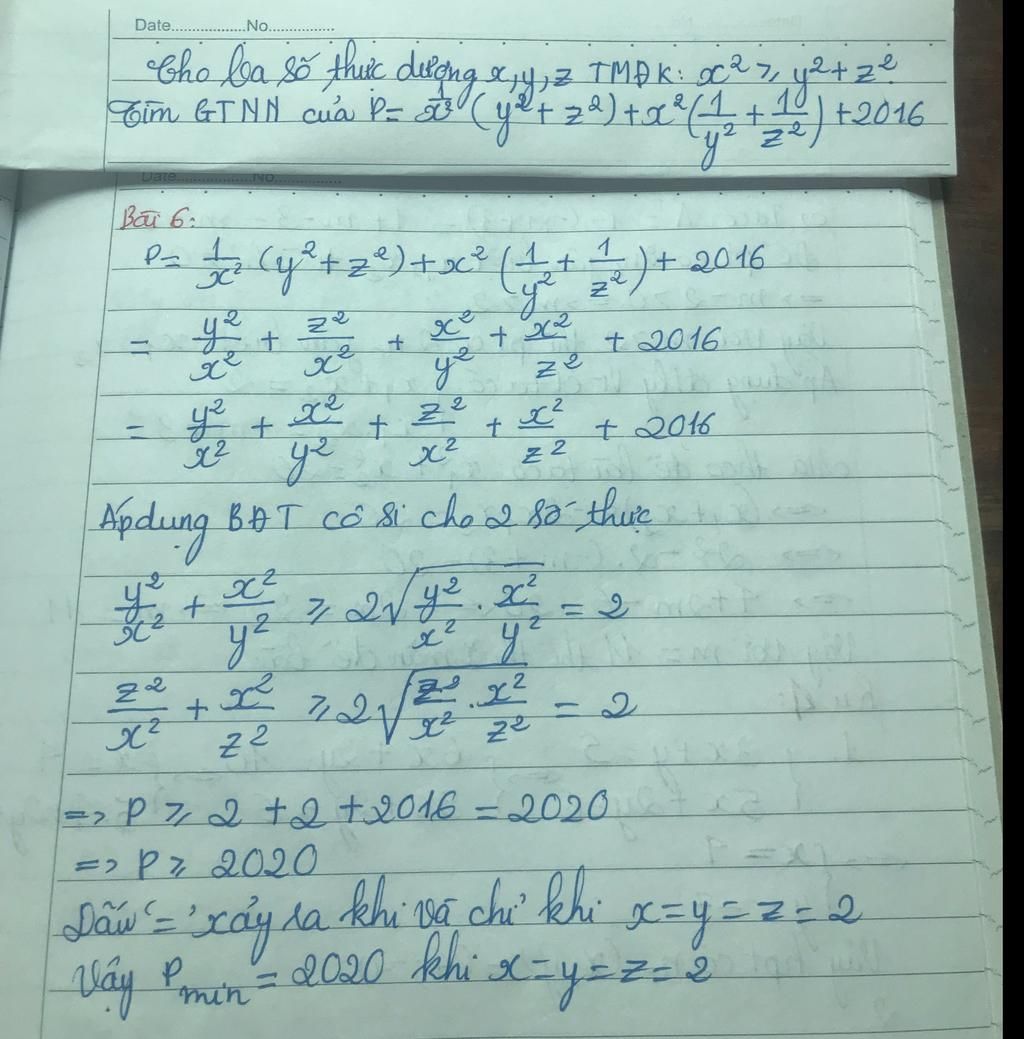 Date..................No................
Cho ba số thực dương x, y, z TMĐK: x² ≥ y² + z²
Tìm GTNN của P = 1/x² (y² + z²) + x² (1/y² + 1/z²) + 2016
Date..................No................
Bài 6:
P = 1/x² (y² + z²) + x² (1/y² + 1/z²) + 2016
= y²/x² + z²/x² + x²/y² + x²/z² + 2016
= y²/x² + x²/y² + z²/x² + x²/z² + 2016
Áp dụng BĐT cô si cho 2 số thực
y²/x² + x²/y² ≥ 2√(y²/x² . x²/y²) = 2
z²/x² + x²/z² ≥ 2√(z²/x² . x²/z²) = 2
=> P ≥ 2 + 2 + 2016 = 2020
=> P ≥ 2020
Dấu '=' xảy ra khi và chỉ khi x = y = z = 2
Vậy P min = 2020 khi x = y = z = 2